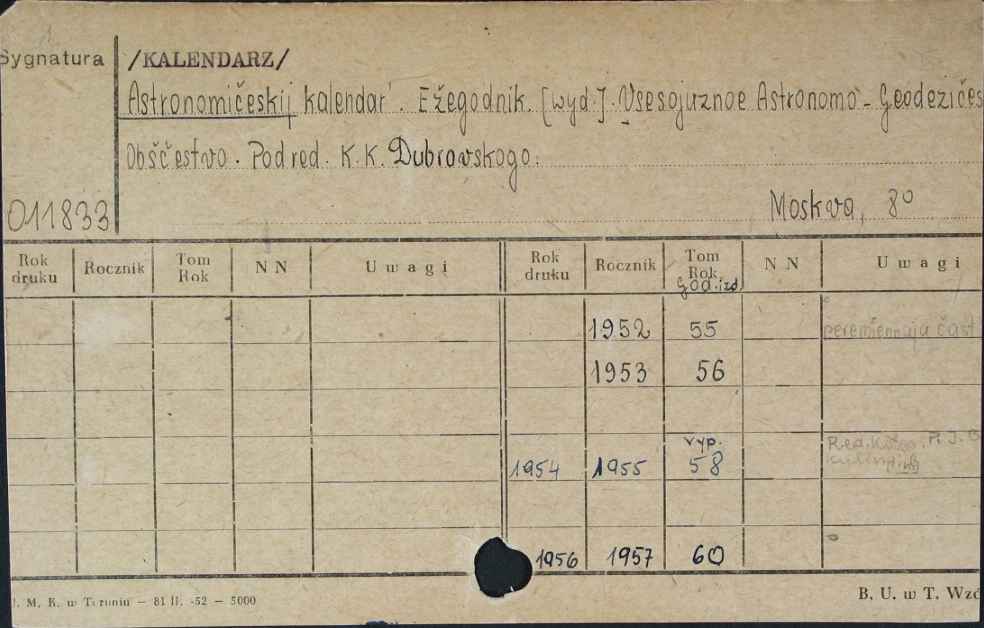 Sygnatura /KALENDARZ/
Astronomičeskij kalendar'. Ežegodnik. [wyd.]. Vsesojuznoe Astronomo-Geodezičes
Obščestvo. Pod red. K.K. Dubrovskogo.
011833 Moskva, 8º
Rok druku Rocznik Tom Rok NN Uwagi Rok druku Rocznik Tom Rok NN Uwagi
God. izd
1952 55 peremiennaja čast
1953 56
vyp. Red.
1954 1955 58
1956 1957 60
M. K. w Toruniu — 81 II. -52 — 5000 B. U. w T. Wzó